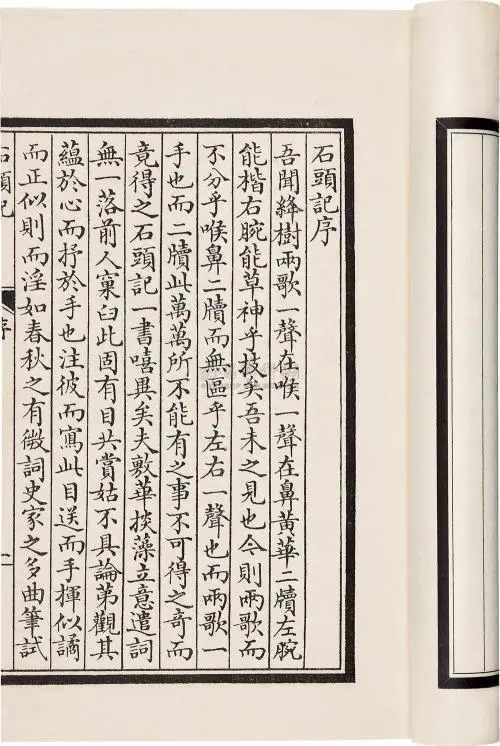 石頭記序
吾聞絳樹兩歌一聲在喉一聲在鼻黃華二牘左腕
能楷右腕能草神乎技矣吾未之見也今則兩歌而
不分乎喉鼻二牘而無區乎左右一聲也而兩歌一
手也而二牘此萬萬所不能有之事不可得之奇而
竟得之石頭記一書嘻異矣夫敷華掞藻立意遣詞
無一落前人窠臼此固有目共賞姑不具論第觀其
蘊於心而抒於手也注彼而寫此目送而手揮似譎
而正似則而淫如春秋之有微詞史家之多曲筆試
石頭記 序 一